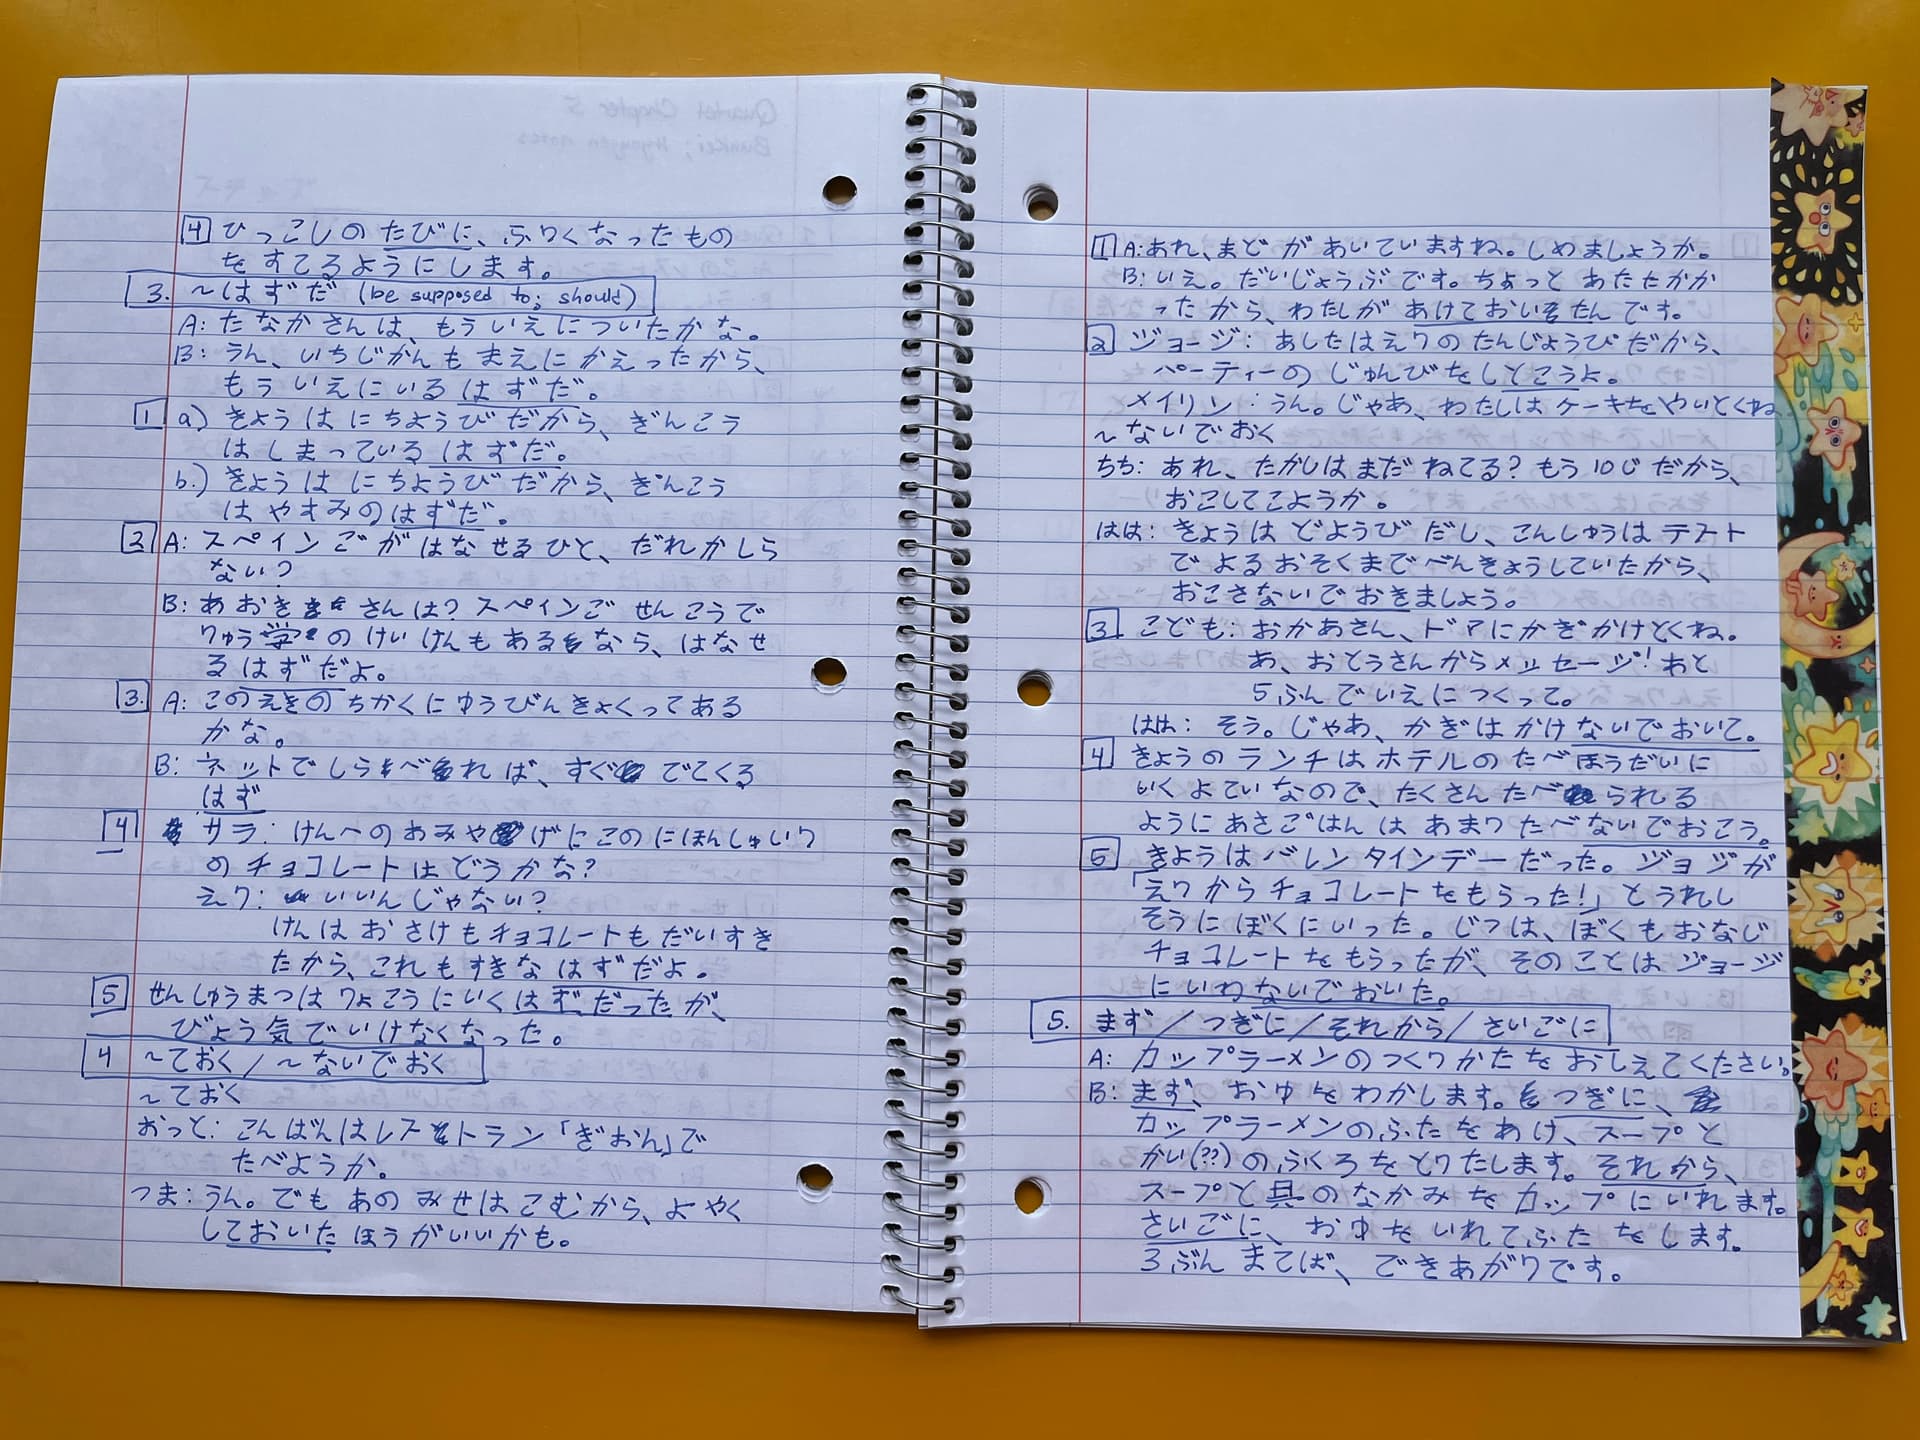 4 ひっこしのたびに、ふりくなったもの
をすてるようにします。
3. ～はずだ (be supposed to; should)
A: たなかさんは、もういえについたかな。
B: うん、いちじかんもまえにかえったから、
もういえにいるはずだ。
1 a) きょうはにちようびだから、ぎんこう
はしまっているはずだ。
b.) きょうはにちようびだから、ぎんこう
はやすみのはずだ。
2 A: スペインごがはなせるひと、だれかしら
ない?
B: あおきさんは? スペインごせんこうで
りゅう学のけいけんもあるなら、はなせ
るはずだよ。
3. A: このえきのちかくにゆうびんきょくってある
かな。
B: ネットでしらべれば、すぐでてくる
はず
4 サラ: けんへのおみやげにこのにほんしゅいり
のチョコレートはどうかな?
えり: いいんじゃない?
けんはおさけもチョコレートもだいすき
たから、これもすきなはずだよ。
5 せんしゅうまつはりょこうにいくはずだったが、
びょう気でいけなくなった。
4 ～ておく / ～ないでおく
～ておく
おっと: こんばんはレストラン「ぎおん」で
たべようか。
つま: うん。でもあのみせはこむから、よやく
しておいたほうがいいかも。
1 A: あれ、まどがあいていますね。しめましょうか。
B: いえ。だいじょうぶです。ちょっとあたたかか
ったから、わたしがあけておいたんです。
2 ジョージ: あしたはえりのたんじょうびだから、
パーティーのじゅんびをしとこうよ。
メイリン: うん。じゃあ、わたしはケーキをやいとくね
～ないでおく
ちち: あれ、たかしはまだねてる? もう10じだから、
おこしてこようか。
はは: きょうはどようびだし、こんしゅうはテスト
でよるおそくまでべんきょうしていたから、
おこさないでおきましょう。
3 こども: おかあさん、ドアにかぎかけとくね。
あ、おとうさんからメッセージ! あと
5ふんでいえにつくって。
はは: そう。じゃあ、かぎはかけないでおいて。
4 きょうのランチはホテルのたべほうだいに
いくよていなので、たくさんたべられる
ようにあさごはんはあまりたべないでおこう。
5 きょうはバレンタインデーだった。ジョジが
「えりからチョコレートをもらった!」とうれし
そうにぼくにいった。じつは、ぼくもおなじ
チョコレートをもらったが、そのことはジョージ
にいわないでおいた。
5. まず/つぎに/それから/さいごに
A: カップラーメンのつくりかたをおしえてください。
B: まず、おゆをわかします。つぎに、
カップラーメンのふたをあけ、スープと
かい(??)のふくろをとりたします。それから、
スープと具のなかみをカップにいれます。
さいごに、おゆをいれてふたをします。
3ぷんまてば、できあがりです。